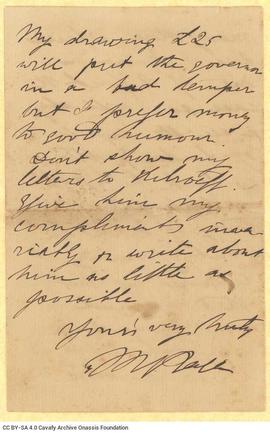 My drawing £25
will put the governor
in a bad temper
but I prefer money
to good humour.
Don't show my
letters to
Give him my
compliments inva
riably or write about
him as little as
possible
Yours very truly
M Ralli
CC BY-SA 4.0 Cavafy Archive Onassis Foundation